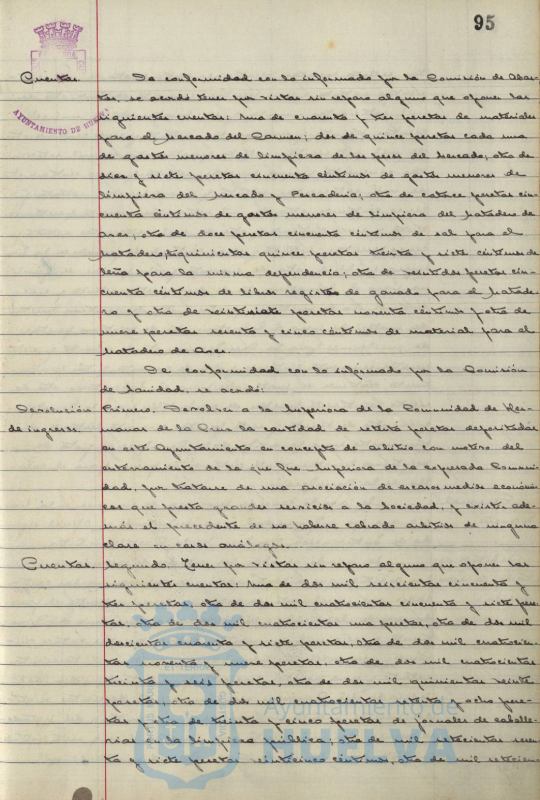 95
AYUNTAMIENTO DE HUELVA
Cuentas. De conformidad con lo informado por la Comisión de Abas-
tos, se acordó tener por vistas sin reparo alguno que oponer las
siguientes cuentas: Una de cuarenta y tres pesetas de materiales
para el Mercado del Carmen; dos de quince pesetas cada una
de gastos menores de limpieza de los pesos del Mercado; otra de
diez y siete pesetas cincuenta céntimos de gastos menores de
limpieza del Mercado y Pescadería; otra de catorce pesetas cin-
cuenta céntimos de gastos menores de limpieza del Matadero de
Aves; otra de doce pesetas cincuenta céntimos de sal para el
Matadero; quinientas quince pesetas treinta y siete céntimos de
leña para la misma dependencia; otra de veintidos pesetas cin-
cuenta céntimos de libros registros de ganado para el Matade-
ro y otra de veintisiete pesetas noventa céntimos y otra de
nueve pesetas sesenta y cinco céntimos de material para el
Matadero de Aves.
De conformidad con lo informado por la Comisión
de Sanidad, se acordó:
Devolución de ingresos. Primero. Devolver a la Superiora de la Comunidad de Her-
manas de la Cruz la cantidad de setenta pesetas depositadas
en este Ayuntamiento en concepto de arbitrio con motivo del
enterramiento de la que fue Superiora de la expresada Comuni-
dad, por tratarse de una asociación de escasos medios económi-
cos que presta grandes servicios a la Sociedad, y existir ade-
más el precedente de no haberse cobrado arbitrios de ninguna
clase en casos análogos.
Cuentas. Segundo. Tener por vistas sin reparo alguno que oponer las
siguientes cuentas: Una de dos mil seiscientas cincuenta y
tres pesetas, otra de dos mil cuatrocientas cincuenta y siete pese-
tas, otra de dos mil cuatrocientas una pesetas, otra de dos mil
doscientas cuarenta y siete pesetas, otra de dos mil cuatrocien-
tas noventa y nueve pesetas, otra de dos mil cuatrocientas
treinta y seis pesetas, otra de dos mil quinientas veinte
pesetas, otra de dos mil cuatrocientas setenta y ocho pese-
tas y otra de treinta y cinco pesetas de jornales de caballe-
rías en la limpieza pública; otra de mil setecientas sesen-
ta y siete pesetas veinticinco céntimos, otra de mil setecien-
Ayuntamiento de
HUELVA